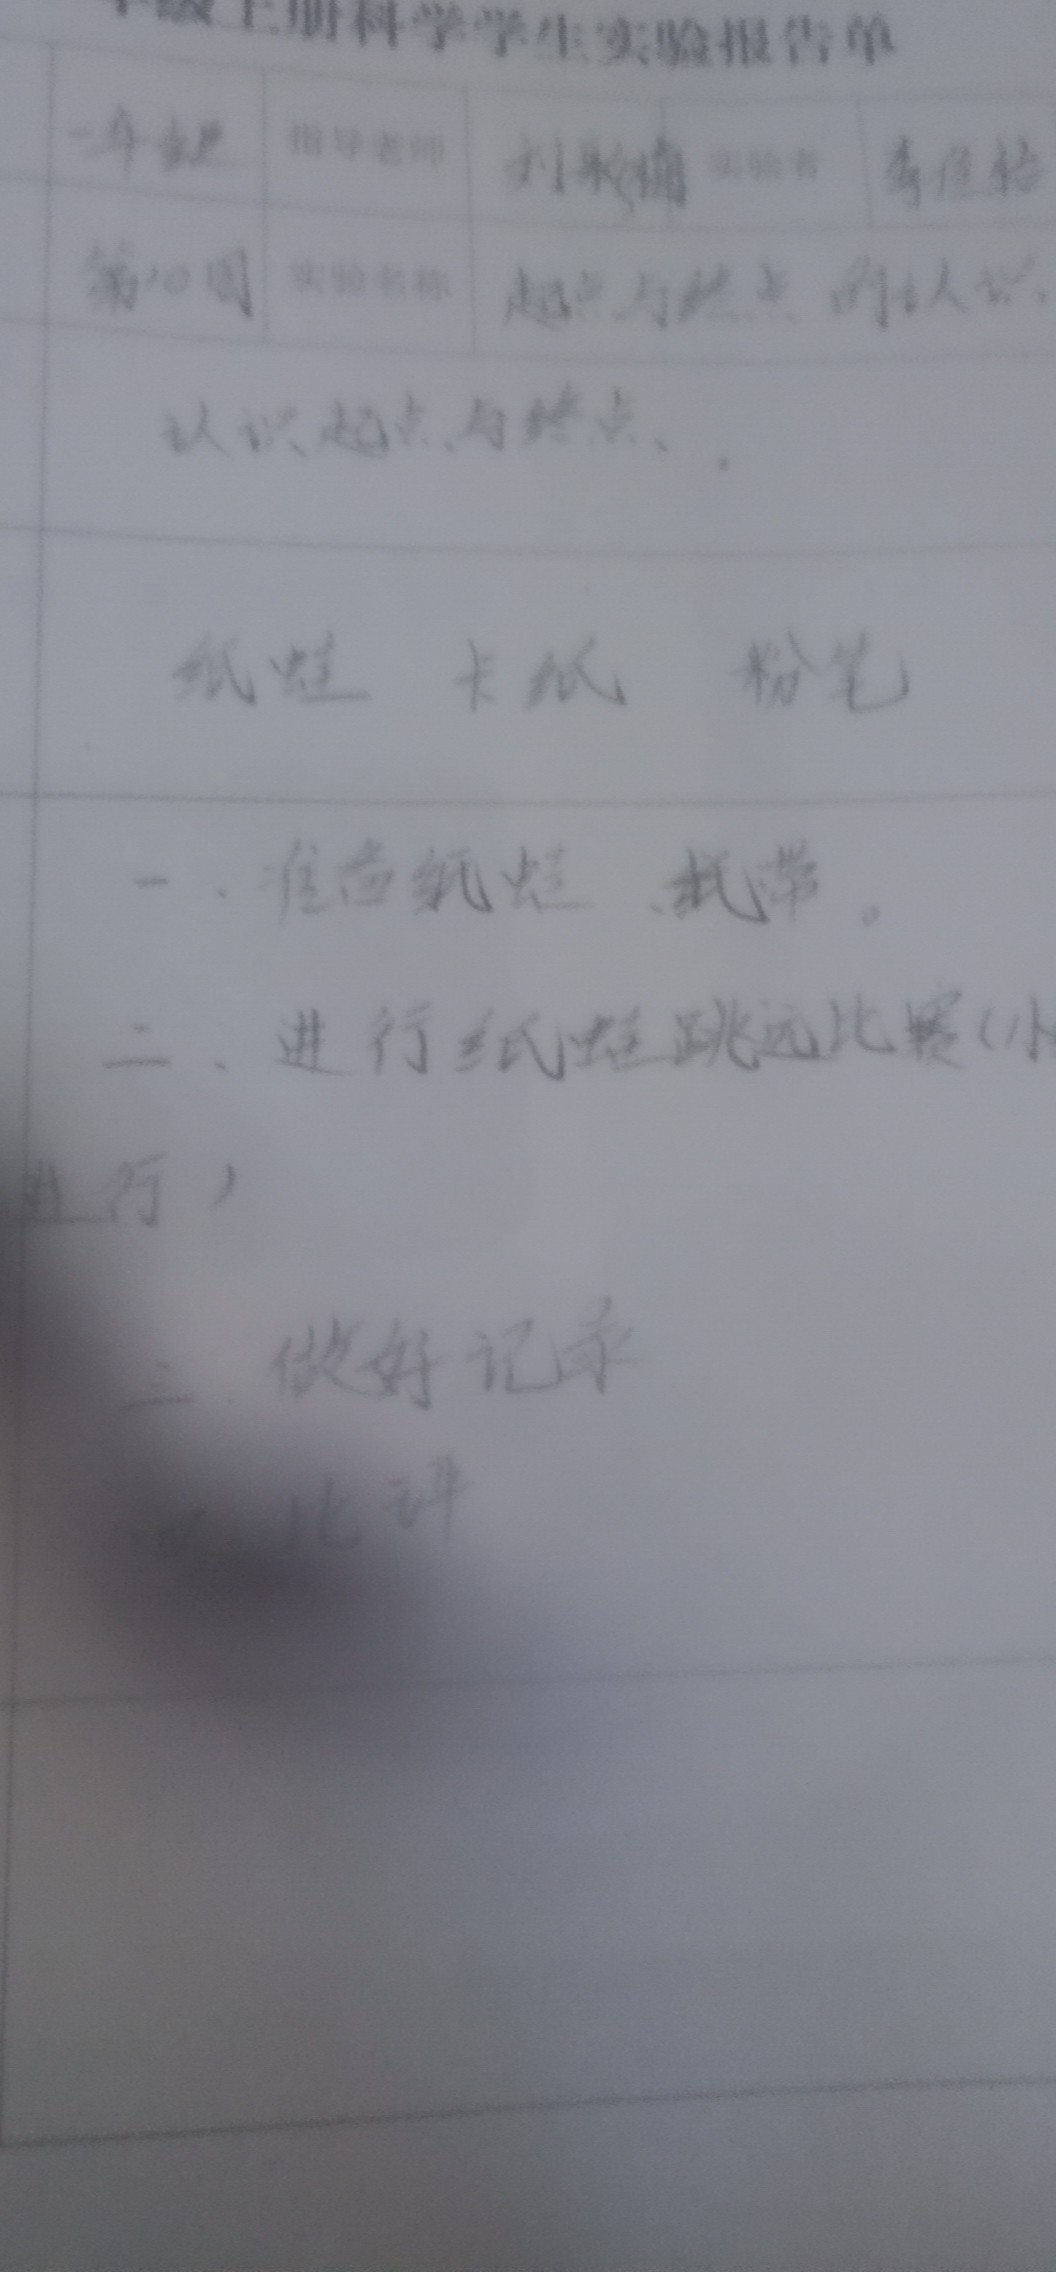 年级上册科学学生实验报告单
指导老师 实验者
第10周 实验名称 起点与终点 的认识
认识起点与终点、.
纸蛙 卡纸 粉笔
一、准备纸蛙、纸带。
二、进行纸蛙跳远比赛(小
进行)
三、做好记录